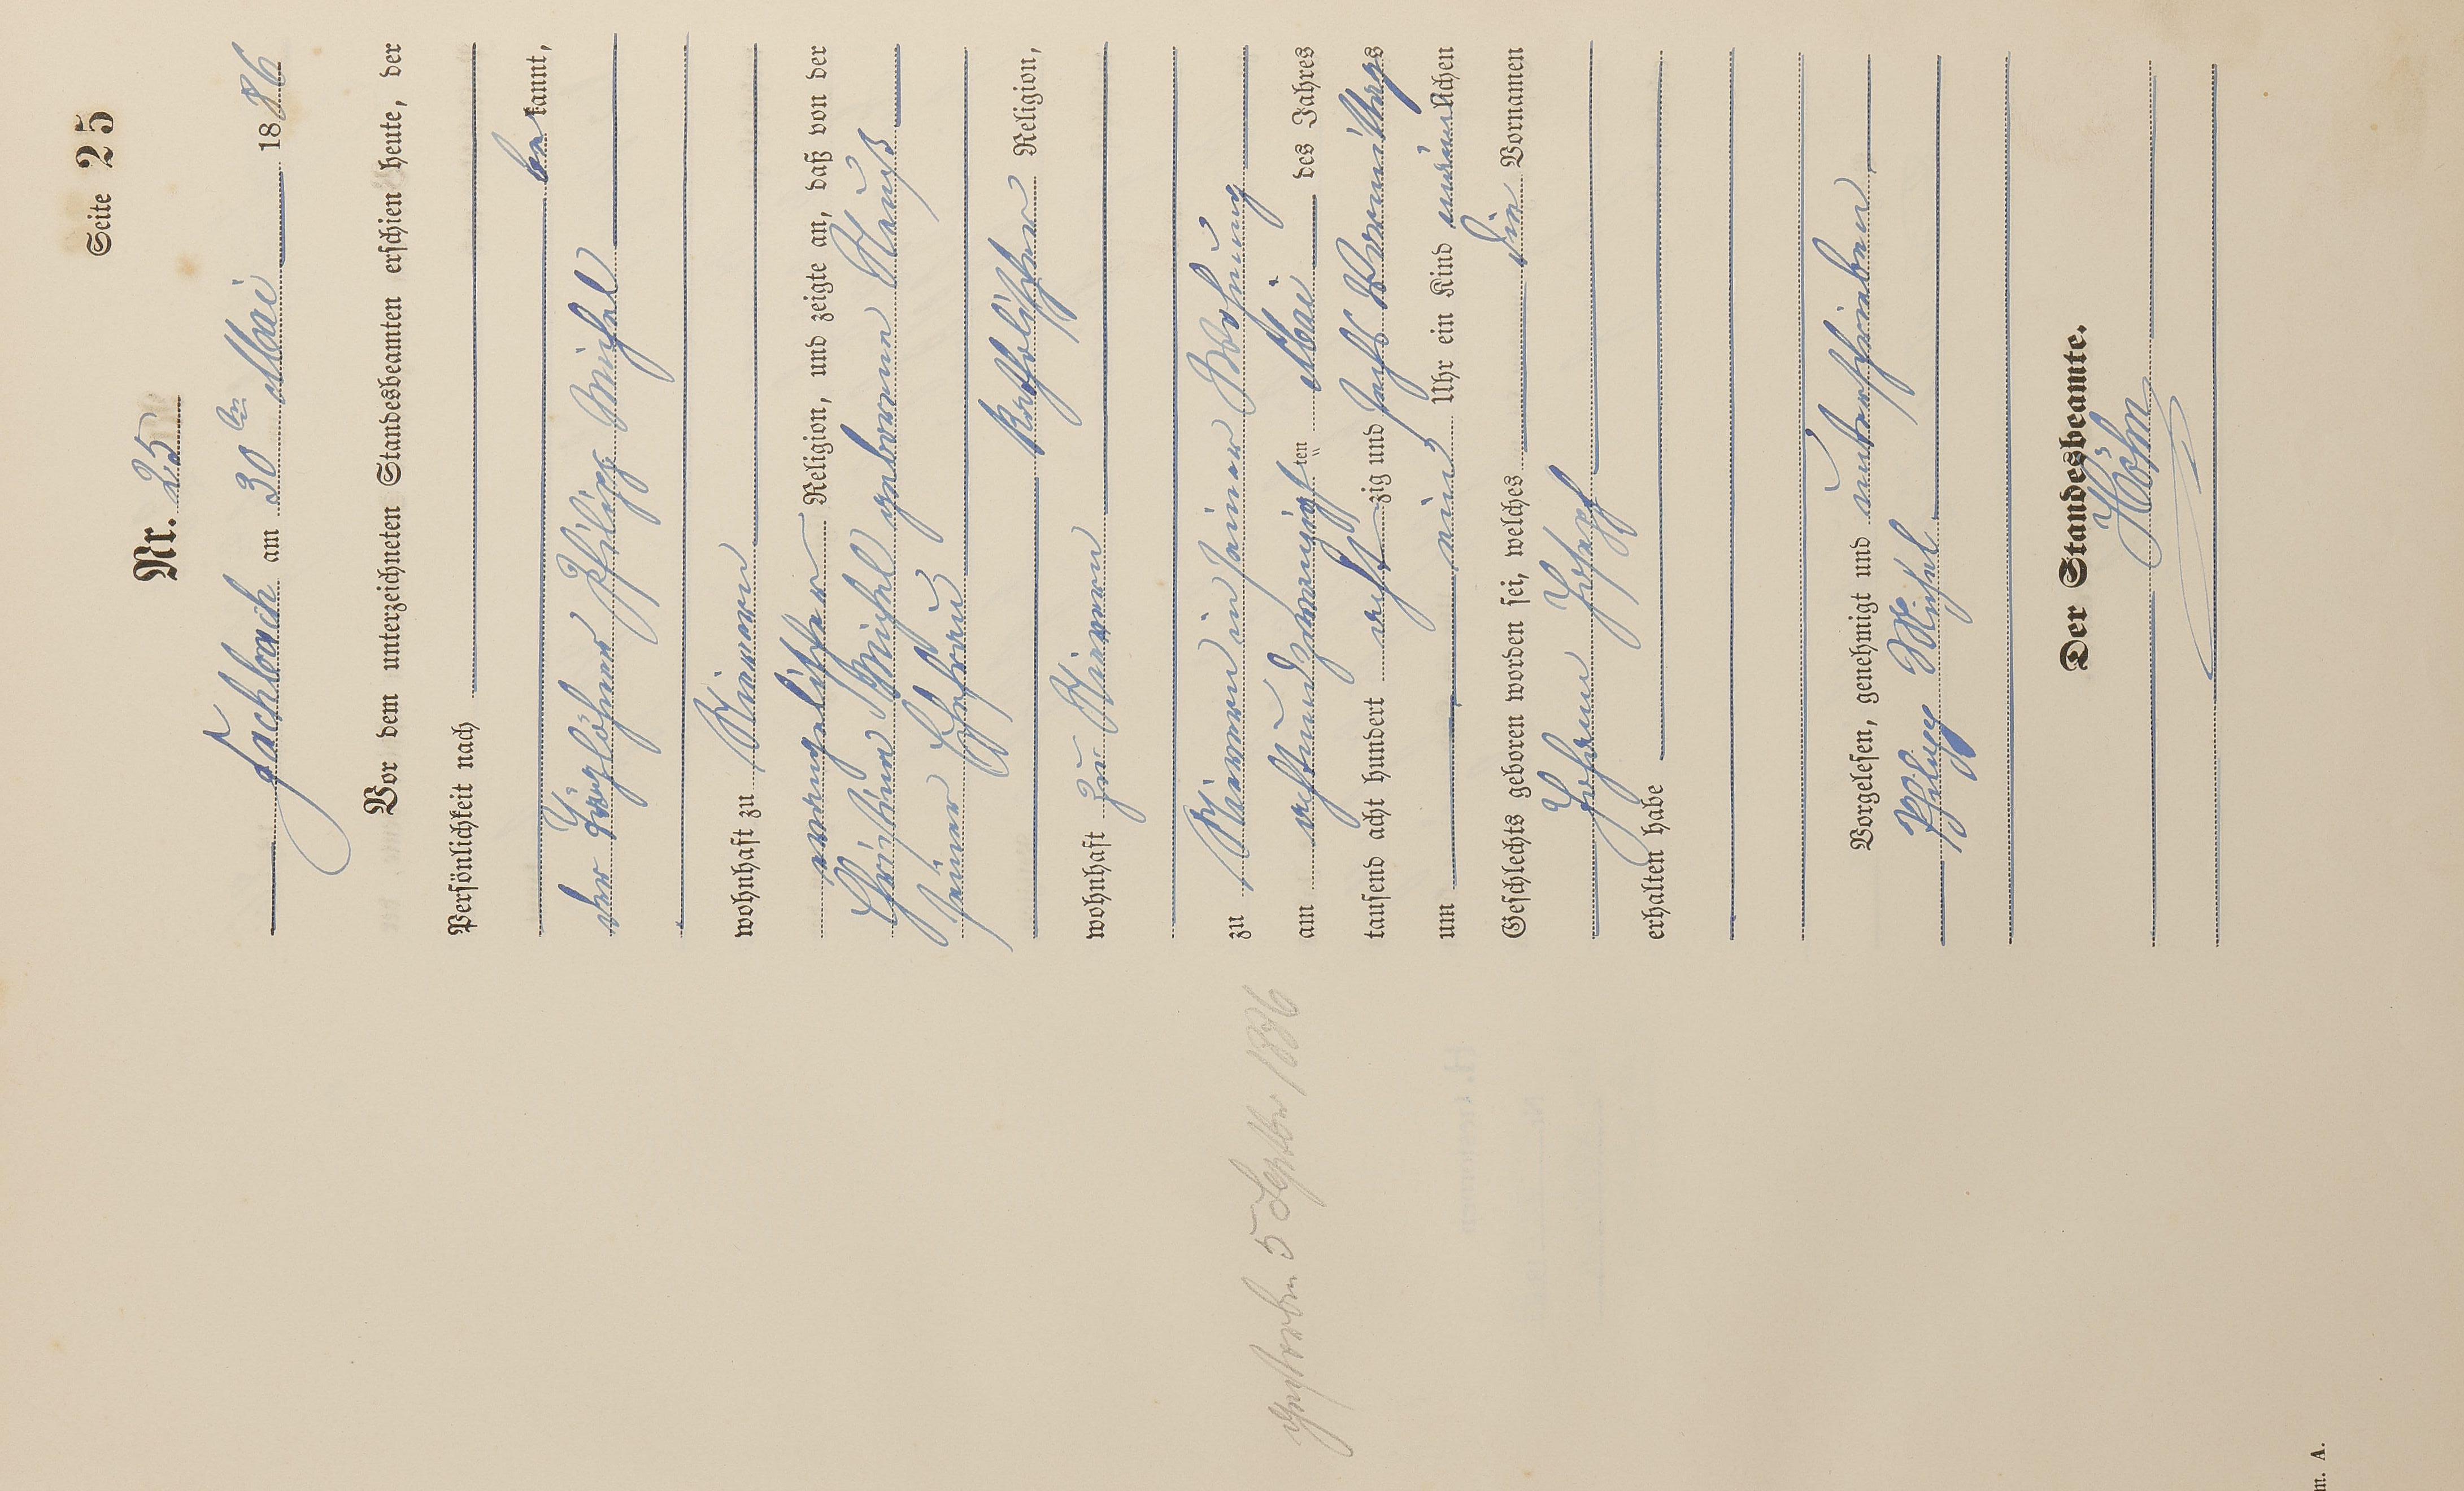 Seite 25
Nr. 25
Fachbach am 30ten Mai 1886
Vor dem unterzeichneten Standesbeamten erschien heute, der
Persönlichkeit nach
be kannt,
der Taglöhner Philipp Michel
wohnhaft zu Nievern
evangelischer Religion, und zeigte an, daß von der
Christine Michel geborenen
seiner Ehefrau
katholischer Religion,
wohnhaft zu Nievern
zu Nievern in seiner Wohnung
am achtundzwanzigsten Mai des Jahres
tausend acht hundert acht zig und sechs Vormittags
um ein Uhr ein Kind männlichen
Geschlechts geboren worden sei, welches die Vornamen
Johann Josef
erhalten habe
Vorgelesen, genehmigt und unterschrieben
Philipp Michel
Der Standesbeamte.
Höhn
gestorben 5 September 1886
m. A.